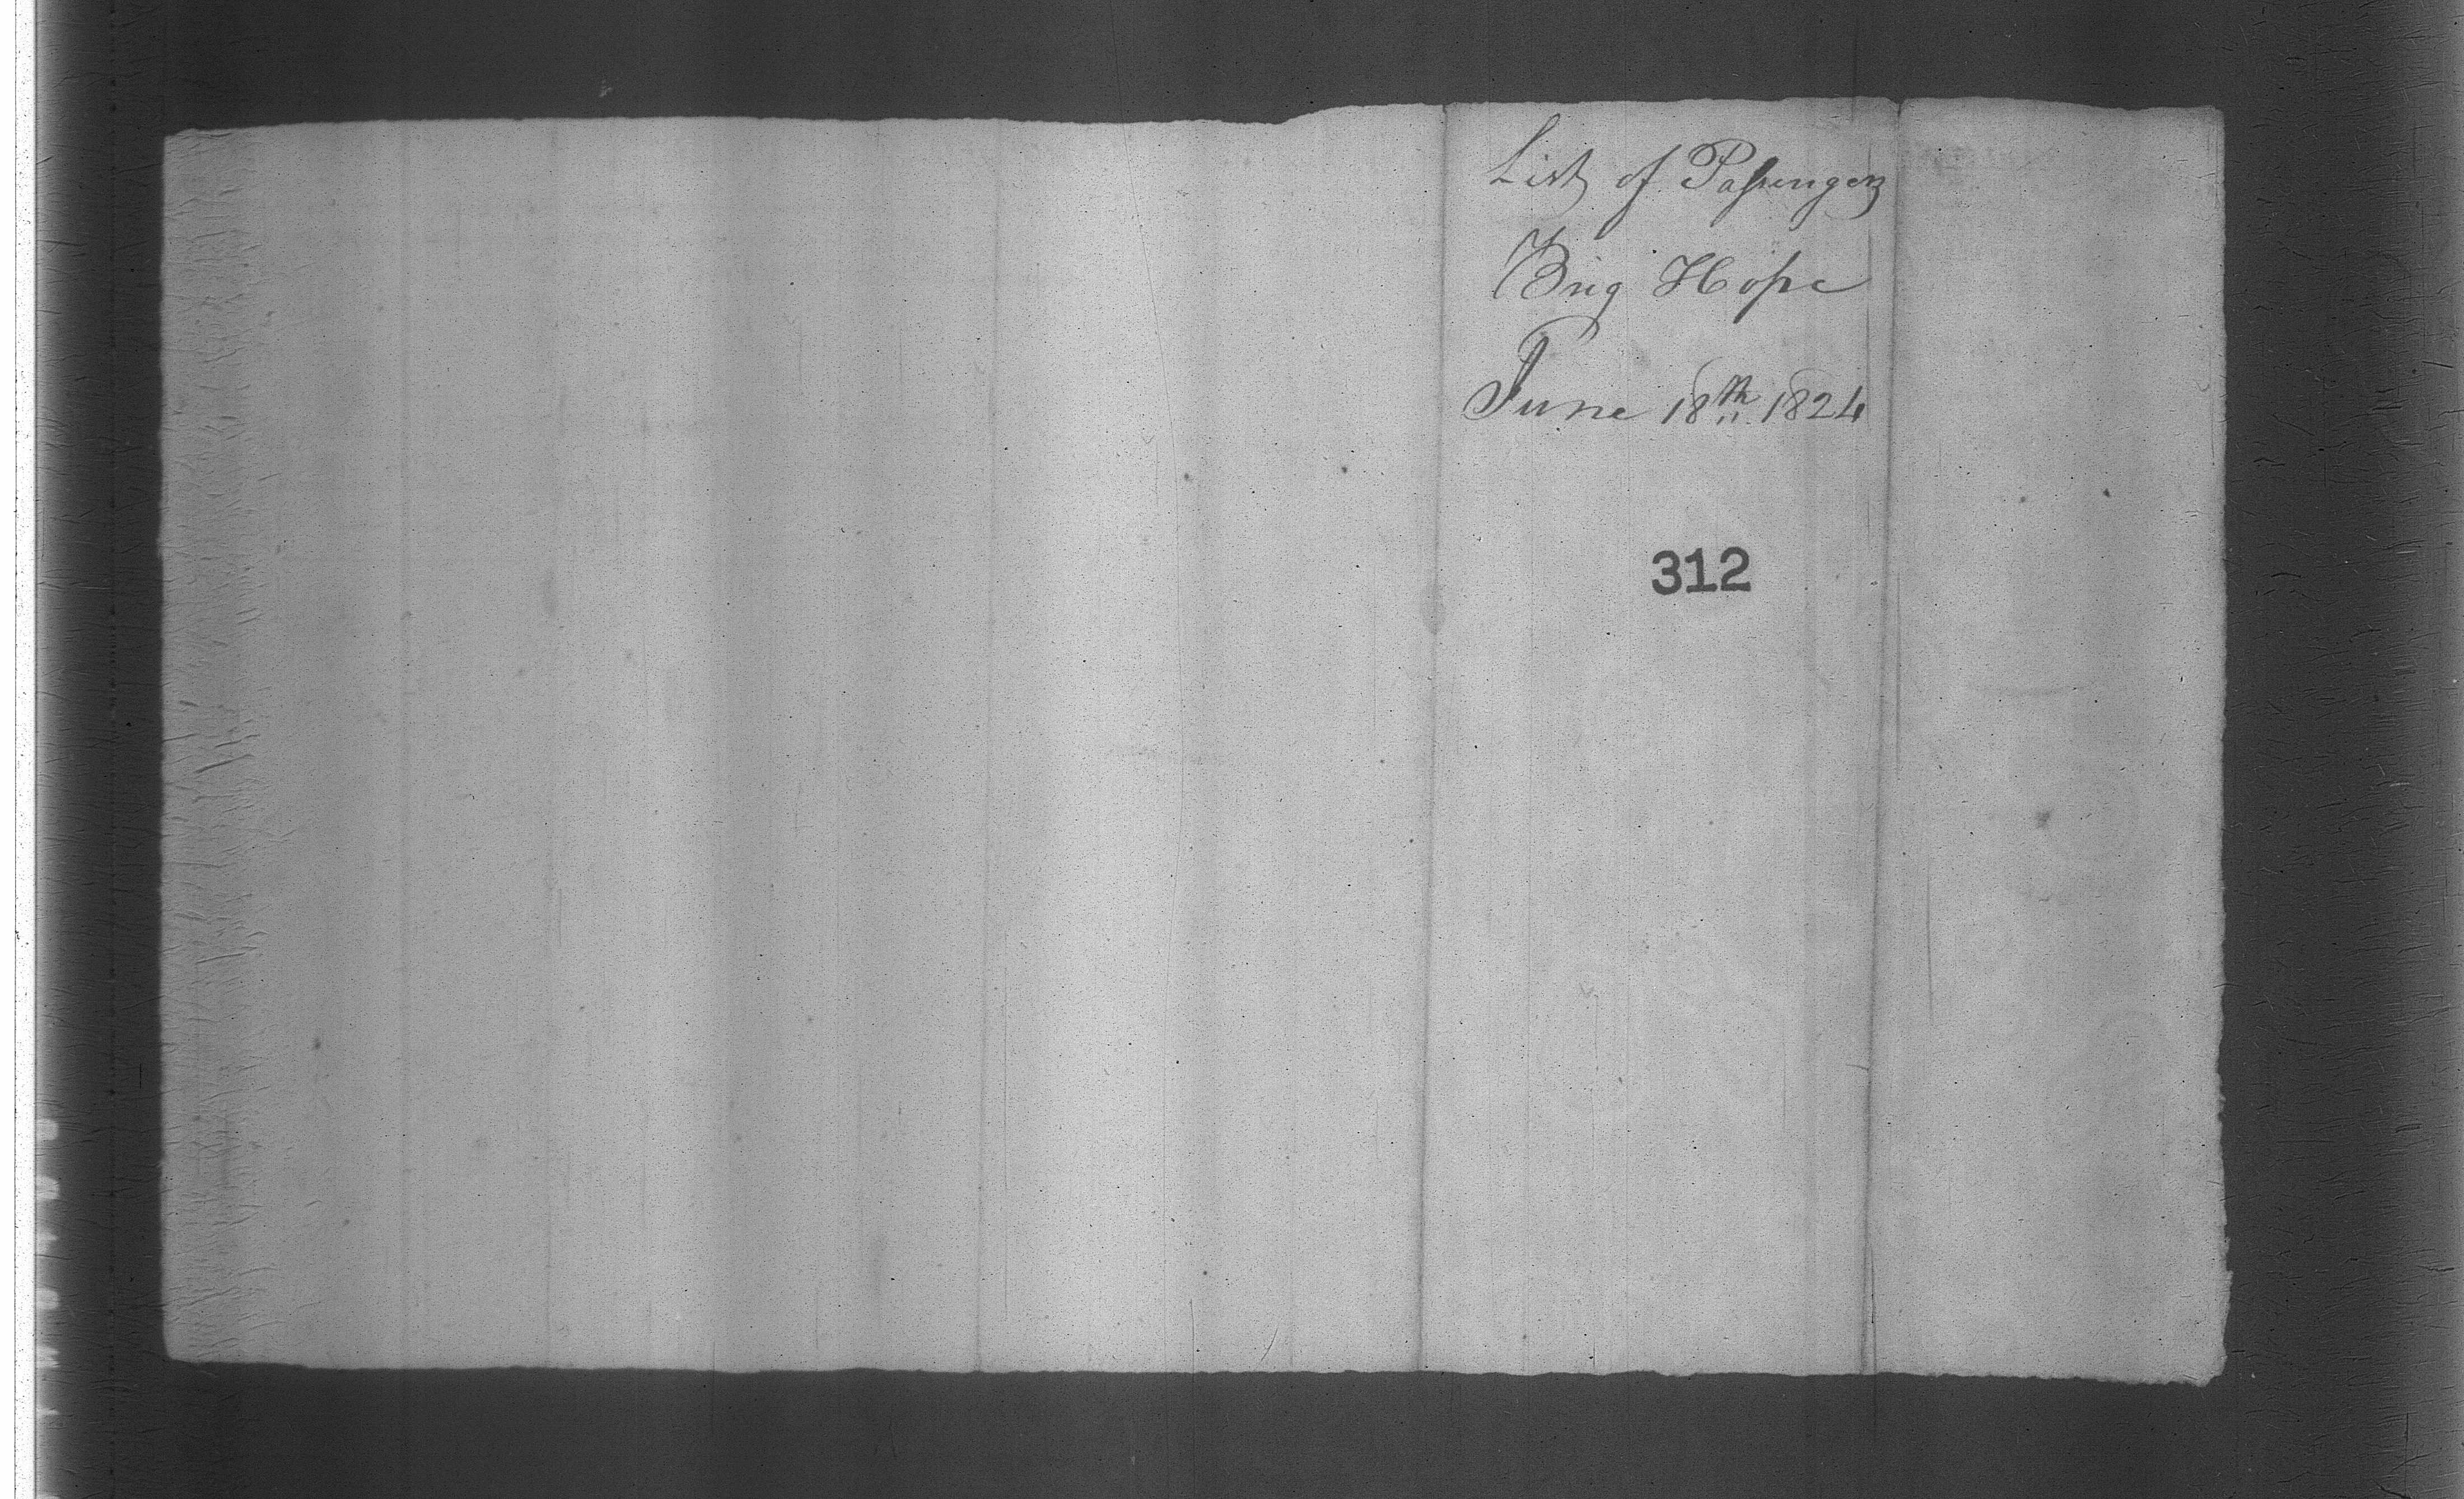 List of Passengers
Brig Hope
June 18th 1824
312